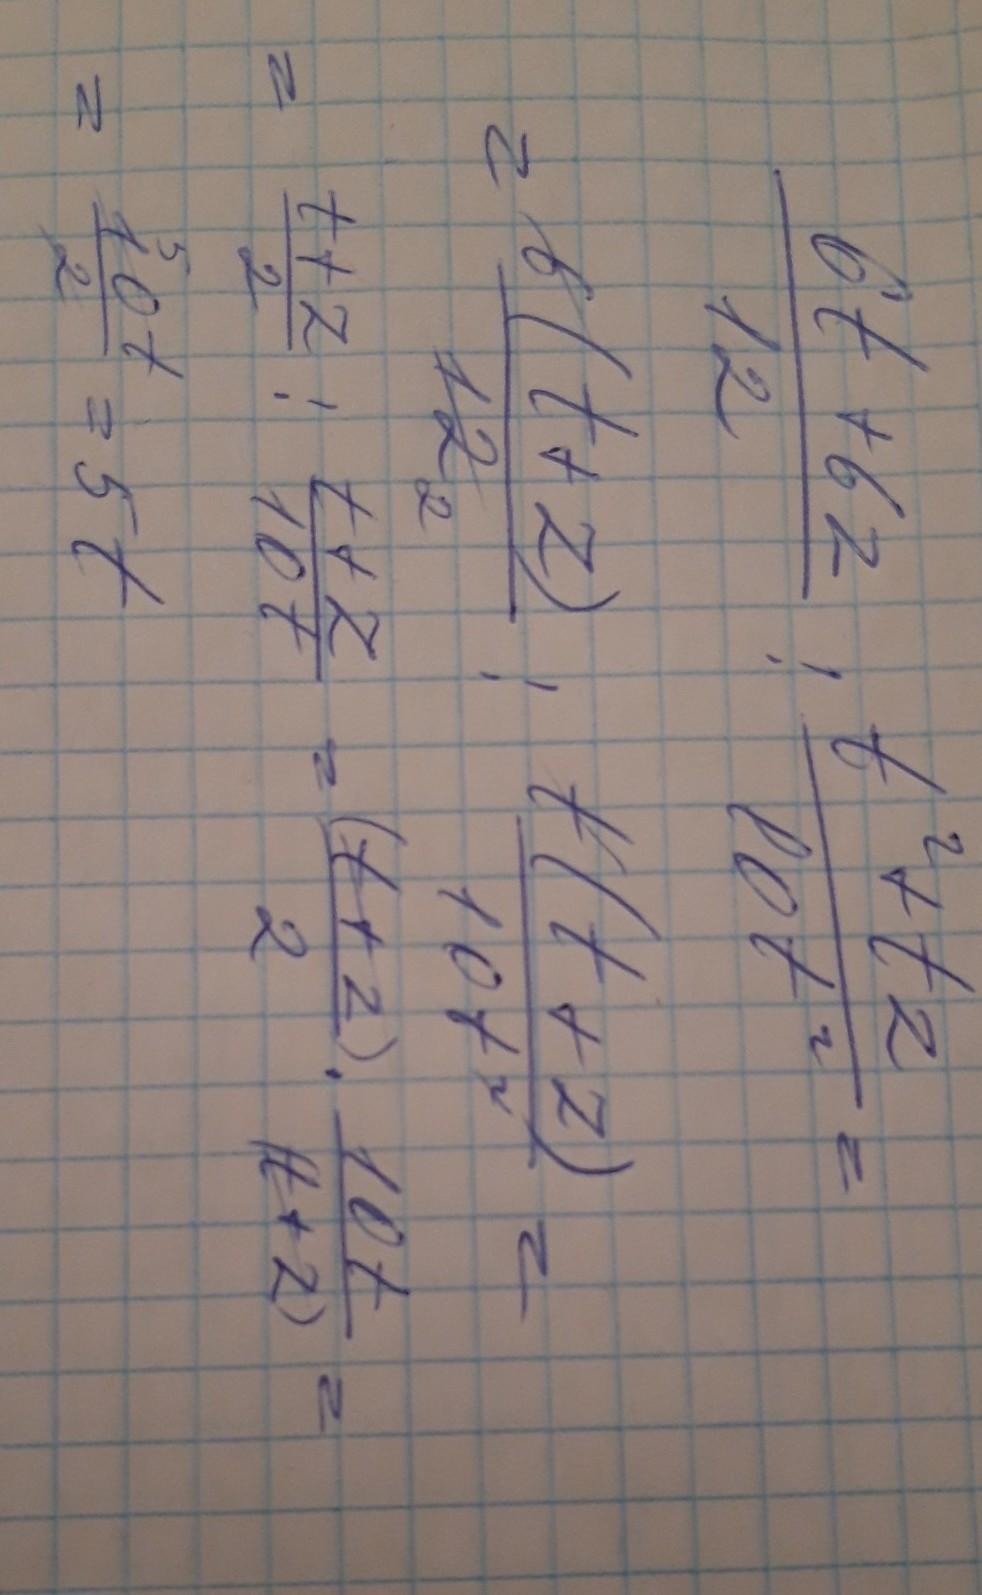 (6t + 6z)/12 : (t² + tz)/(10t²) =
= 6(t + z)/12 2 : t(t + z)/(10t²) =
= (t + z)/2 : (t + z)/(10t) = (t + z)/2 · 10t/(t + z) =
= 5 10t/2 = 5t